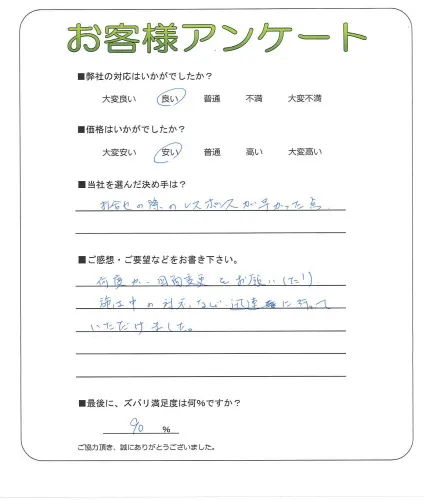 お客様アンケート
■弊社の対応はいかがでしたか？
大変良い 良い 普通 不満 大変不満
■価格はいかがでしたか？
大変安い 安い 普通 高い 大変高い
■当社を選んだ決め手は？
打合せの際のレスポンスが早かった点
■ご感想・ご要望などをお書き下さい。
何度か図面変更をお願いしたり
施工中の対応など迅速に行って
いただけました。
■最後に、ズバリ満足度は何％ですか？
90 ％
ご協力頂き、誠にありがとうございました。